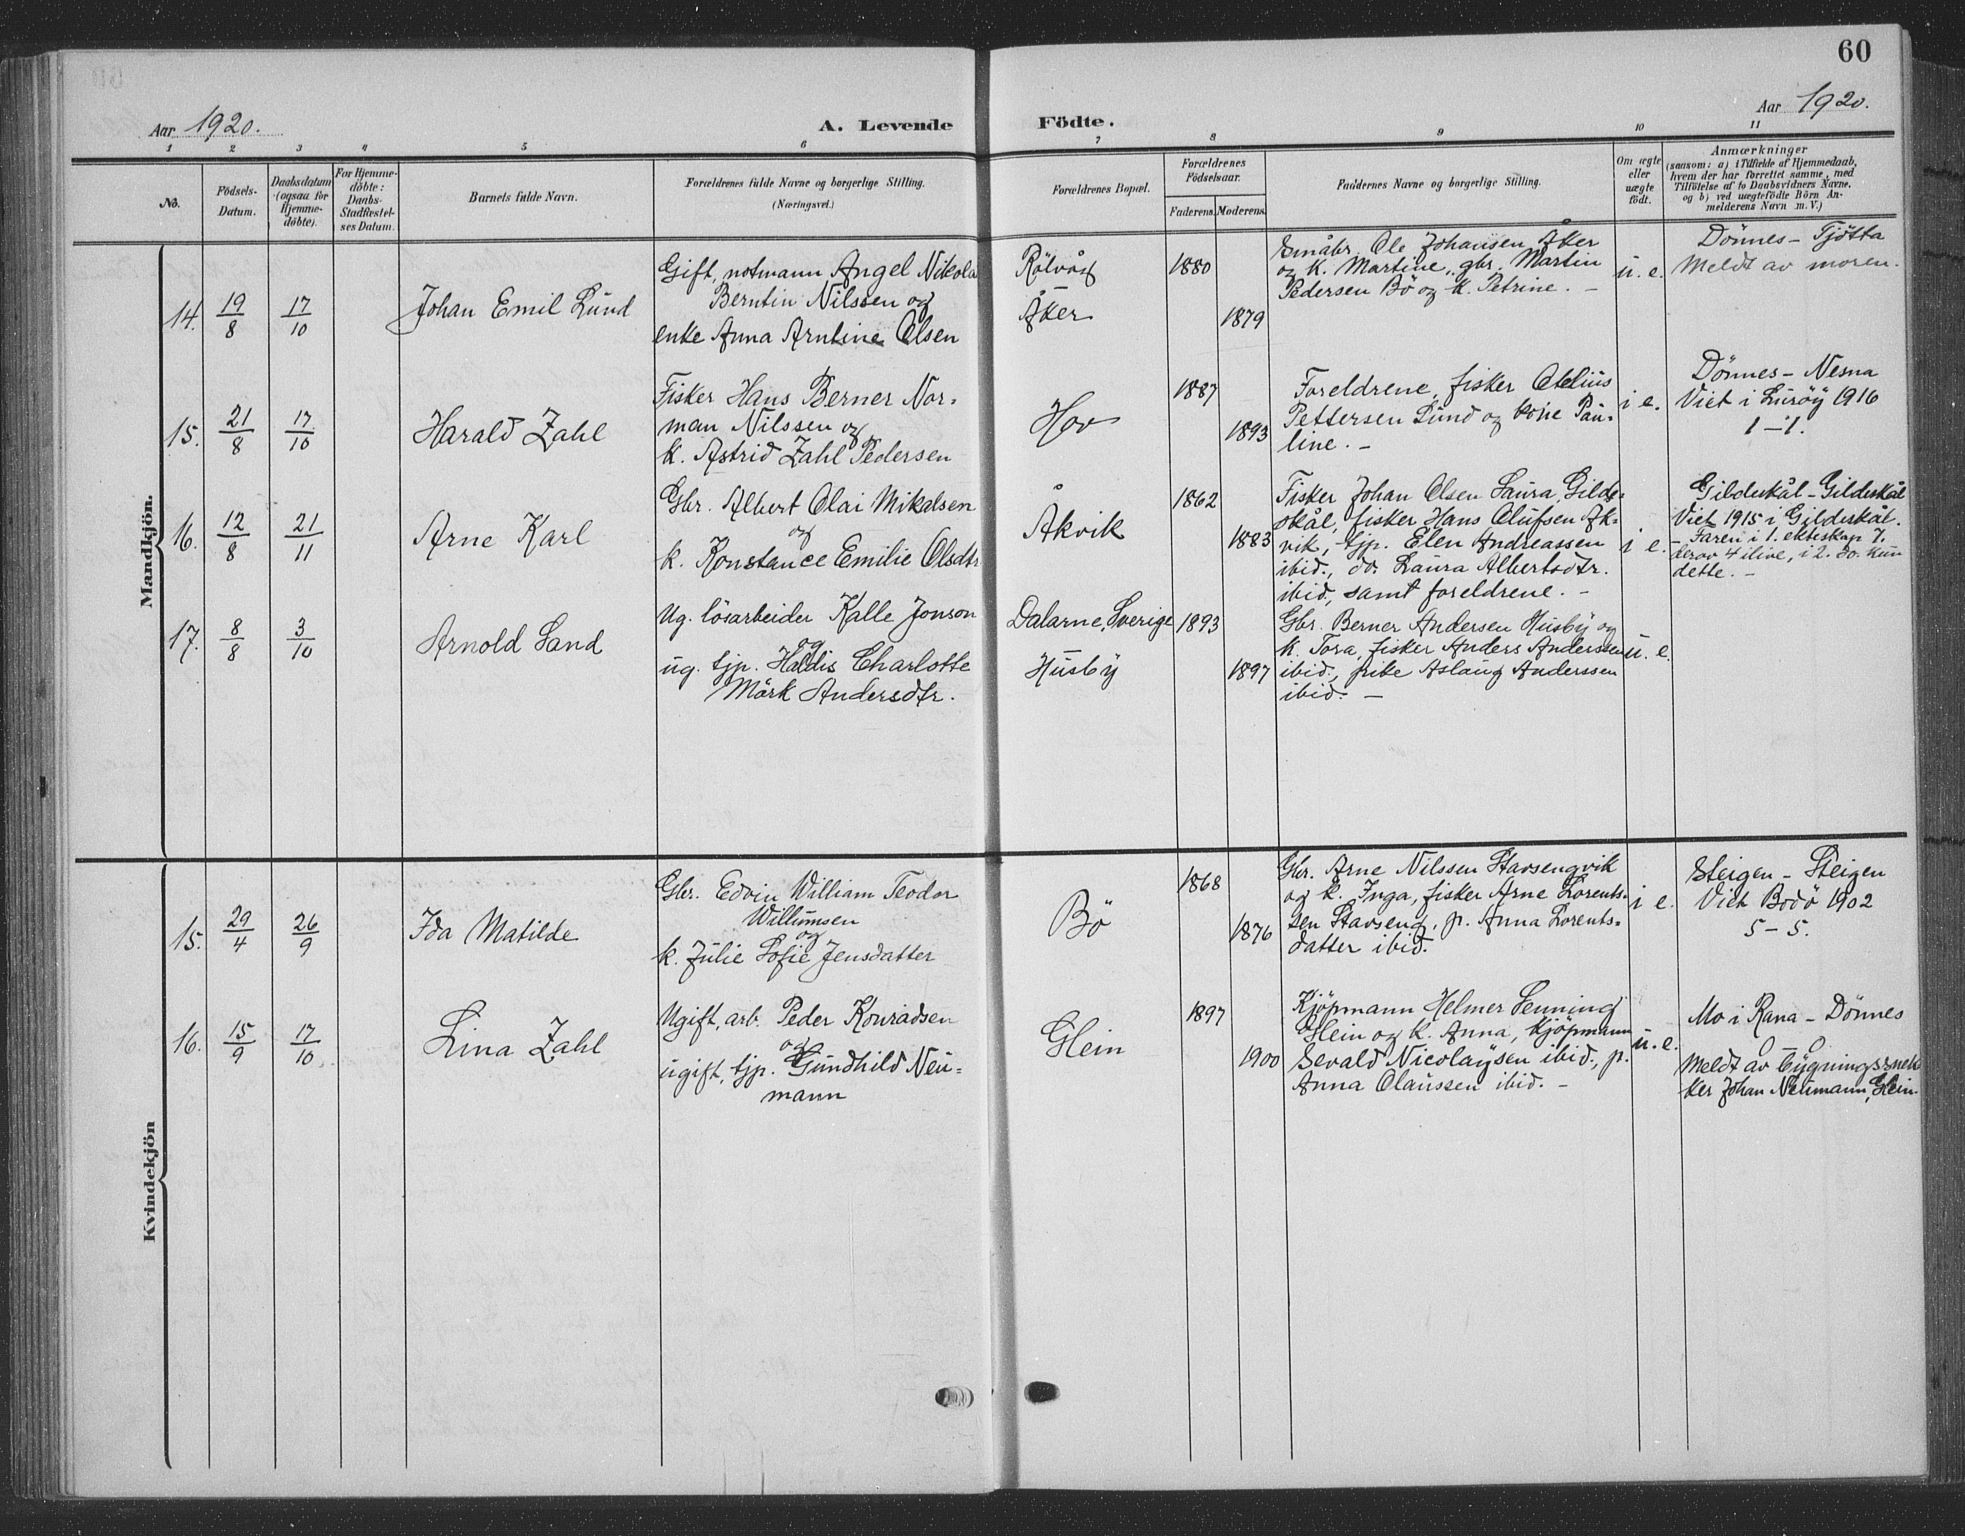 60
Aar 1920.
A. Levende Födte.
Aar 1920.
1 2 3 4 5 6 7 8 9 10 11
No.
Födsels-
Datum.
Daabsdatum
(ogsaa for
Hjemme-
døbte).
For Hjemme-
døbte:
Daabs-
Stadfæstel-
ses Datum.
Barnets fulde Navn.
Forældrenes fulde Navne og borgerlige Stilling.
(Næringsvei.)
Forældrenes Bopæl.
Forældrenes
Födselsaar.
Faderens. Moderens.
Faddernes Navne og borgerlige Stilling.
Om ægte
eller
uægte
født.
Anmærkninger
(saasom: a) i Tilfælde af Hjemmedaab,
hvem der har forrettet samme, med
Tilføielse af to Daabsvidners Navne,
og b) ved uægtefödte Börn An-
melderens Navn m. V.)
Mandkjön.
14. 19/8 17/10
Johan Emil Lund
Gift, notmann Angel Nikolai
Berntin Nilssen og
enke Anna Arntine Olsen
Rölvåg
Åker
1880
1879
Småbr. Ole Johansen Åker
og k. Martine, gbr. Martin
Pedersen Bö og k. Petrine. –
u. e.
Dönnes – Tjötta
Meldt av moren.
15. 21/8 17/10
Harald Zahl
Fisker Hans Berner Nor-
man Nilssen og
k. Astrid Zahl Pedersen
Hov
1887
1893
Foreldrene, fisker Otelius
Pettersen Lund og kone Pau-
line. –
i e.
Dönnes – Nesna
Viet i Luröy 1916
1 – 1.
16. 12/8 21/11
Arne Karl
Gbr. Albert Olai Mikalsen
og
k. Konstance Emilie Olsdtr
Åkvik
1862
1883
Fisker Johan Olsen Saura, Gilde-
skål, fisker Hans Olufsen Åk-
vik, tjp. Elen Andreassen
ibid., do. Laura Albertsdtr.
ibid., samt foreldrene. –
i e.
Gildeskål – Gildeskål
Viet 1915 i Gildeskål.
– Faren i 1. ekteskap 7,
derav 4 ilive, i 2. do. kun
dette. –
17. 8/8 3/10
Arnold Sand
Ug. lösarbeider Kalle Jonson
og
ug. tjp. Haldis Charlotte
Mörk Andersdtr.
Dalarne, Sverige
Husby
1893
1897
Gbr. Berner Andersen Husby og
k. Tora, fisker Anders Anderssen
ibid., pike Aslaug Anderssen
ibid. –
u. e.
Kvindekjön
15. 29/4 26/9
Ida Matilde
Gbr. Edvin William Teodor
Willumsen
og
k. Julie Sofie Jensdatter
Bö
1868
1876
Gbr. Arne Nilssen Stavsengvik
og k. Inga, fisker Arne Lorents-
sen Stavseng, p. Anna Lorents-
datter ibid.
i e.
Steigen – Steigen
Viet Bodö 1902
5 – 5.
16. 15/9 17/10
Lina Zahl
Ugift, arb. Peder Konradsen
og
ugift, tjp. Gundhild Neu-
mann
Glein
1897
1900
Kjöpmann Helmer Lenning
Glein og k. Anna, kjöpmann
Sevald Nicolaysen ibid., p.
Anna Olaussen ibid. –
u. e.
Mo i Rana – Dönnes
0 0
Meldt av bygningssnek
ker Johan Neumann, Glein